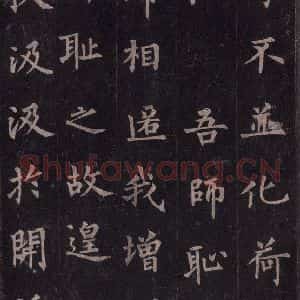 不並化荷
吾師恥
相匿我增
恥之故遑
汲汲於開
Shufawang.CN